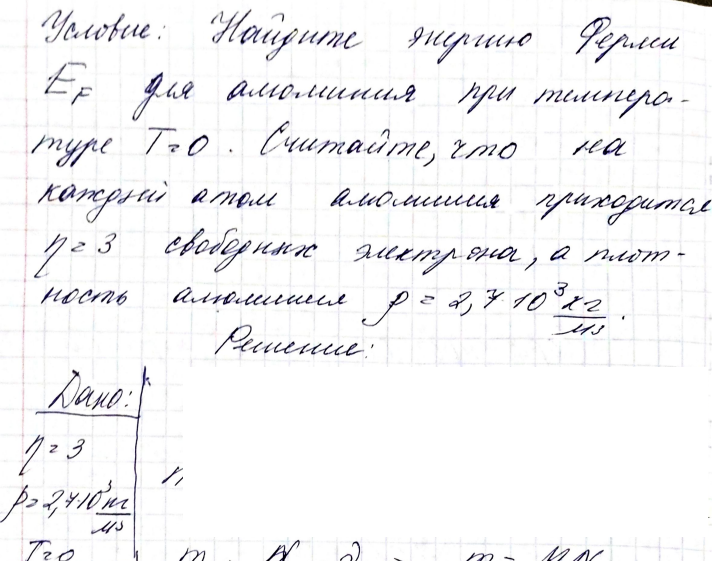 Условие: Найдите энергию Ферми
E_F для алюминия при темпера-
туре T=0. Считайте, что на
каждый атом алюминия приходится
η = 3 свободных электрона, а плот-
ность алюминия ρ = 2,7·10³ кг/м³.
Решение:
Дано:
η = 3
ρ = 2,7·10³ кг/м³
T=0